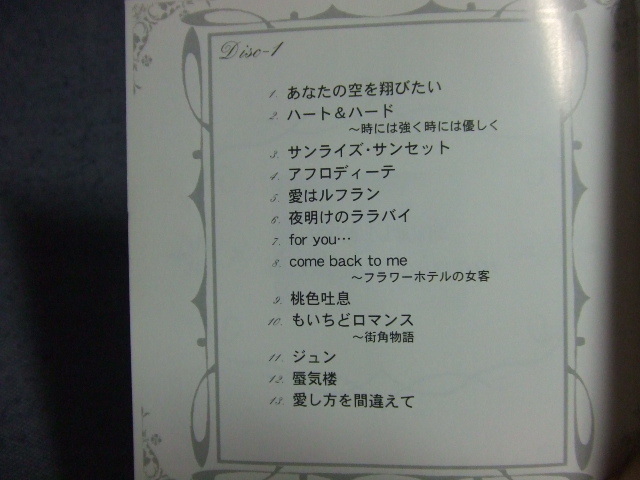 Disc-1
1. あなたの空を翔びたい
2. ハート＆ハード
～時には強く時には優しく
3. サンライズ・サンセット
4. アフロディーテ
5. 愛はルフラン
6. 夜明けのララバイ
7. for you…
8. come back to me
～フラワーホテルの女客
9. 桃色吐息
10. もいちどロマンス
～街角物語
11. ジュン
12. 蜃気楼
13. 愛し方を間違えて